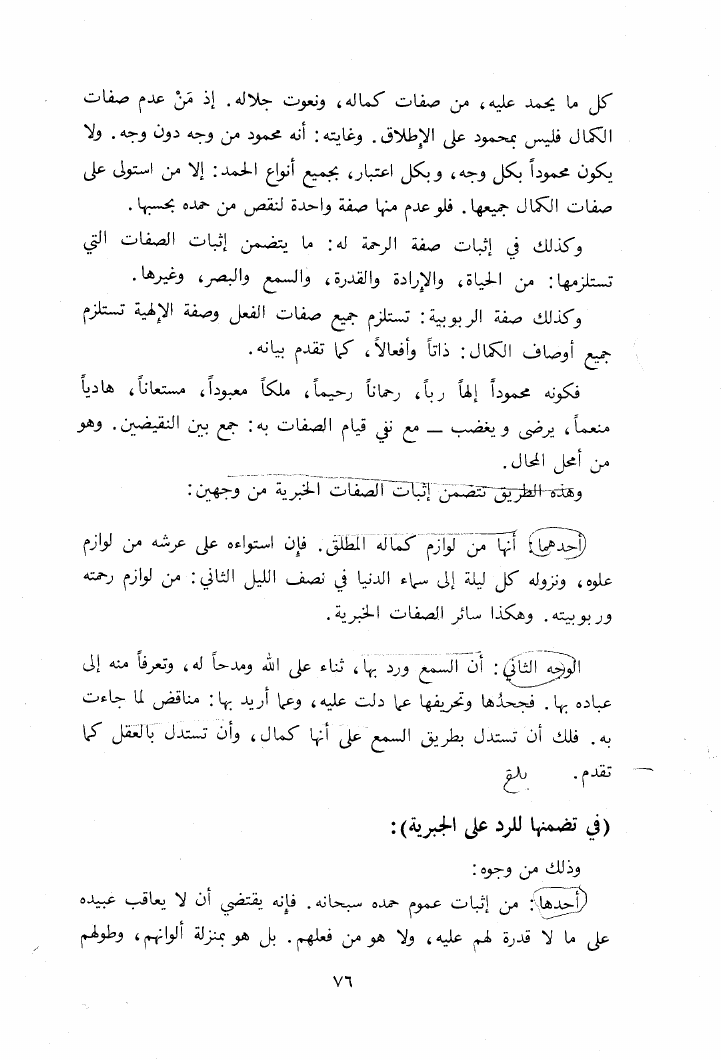 كل ما يحمد عليه، من صفات كماله، ونعوت جلاله. إذ مَنْ عدم صفات
الكمال فليس بمحمود على الإطلاق. وغايته: أنه محمود من وجه دون وجه. ولا
يكون محموداً بكل وجه، وبكل اعتبار، بجميع أنواع الحمد: إلا من استولى على
صفات الكمال جميعها. فلو عدم منها صفة واحدة لنقص من حمده بحسبها.
وكذلك في إثبات صفة الرحمة له: ما يتضمن إثبات الصفات التي
تستلزمها: من الحياة، والإرادة والقدرة، والسمع والبصر، وغيرها.
وكذلك صفة الربوبية: تستلزم جميع صفات الفعل وصفة الإلهية تستلزم
جميع أوصاف الكمال: ذاتاً وأفعالاً، كما تقدم بيانه.
فكونه محموداً إلهاً رباً، رحماناً رحيماً، ملكاً معبوداً، مستعاناً، هادياً
منعماً، يرضى ويغضب ــ مع نفي قيام الصفات به: جمع بين النقيضين. وهو
من أمحل المحال.
وهذه الطريق تتضمن إثبات الصفات الخبرية من وجهين:
أحدهما: أنها من لوازم كماله المطلق. فإن استواءه على عرشه من لوازم
علوه، ونزوله كل ليلة إلى سماء الدنيا في نصف الليل الثاني: من لوازم رحمته
وربوبيته. وهكذا سائر الصفات الخبرية.
الوجه الثاني: أن السمع ورد بها، ثناء على الله ومدحاً له، وتعرفاً منه إلى
عباده بها. فجحدُها وتحريفها عما دلت عليه، وعما أريد بها: مناقض لما جاءت
به. فلك أن تستدل بطريق السمع على أنها كمال، وأن تستدل بالعقل كما
تقدم. بلغ
(في تضمنها للرد على الجبرية):
وذلك من وجوه:
أحدها: من إثبات عموم حمده سبحانه. فإنه يقتضي أن لا يعاقب عبيده
على ما لا قدرة لهم عليه، ولا هو من فعلهم. بل هو بمنزلة ألوانهم، وطولهم
٧٦